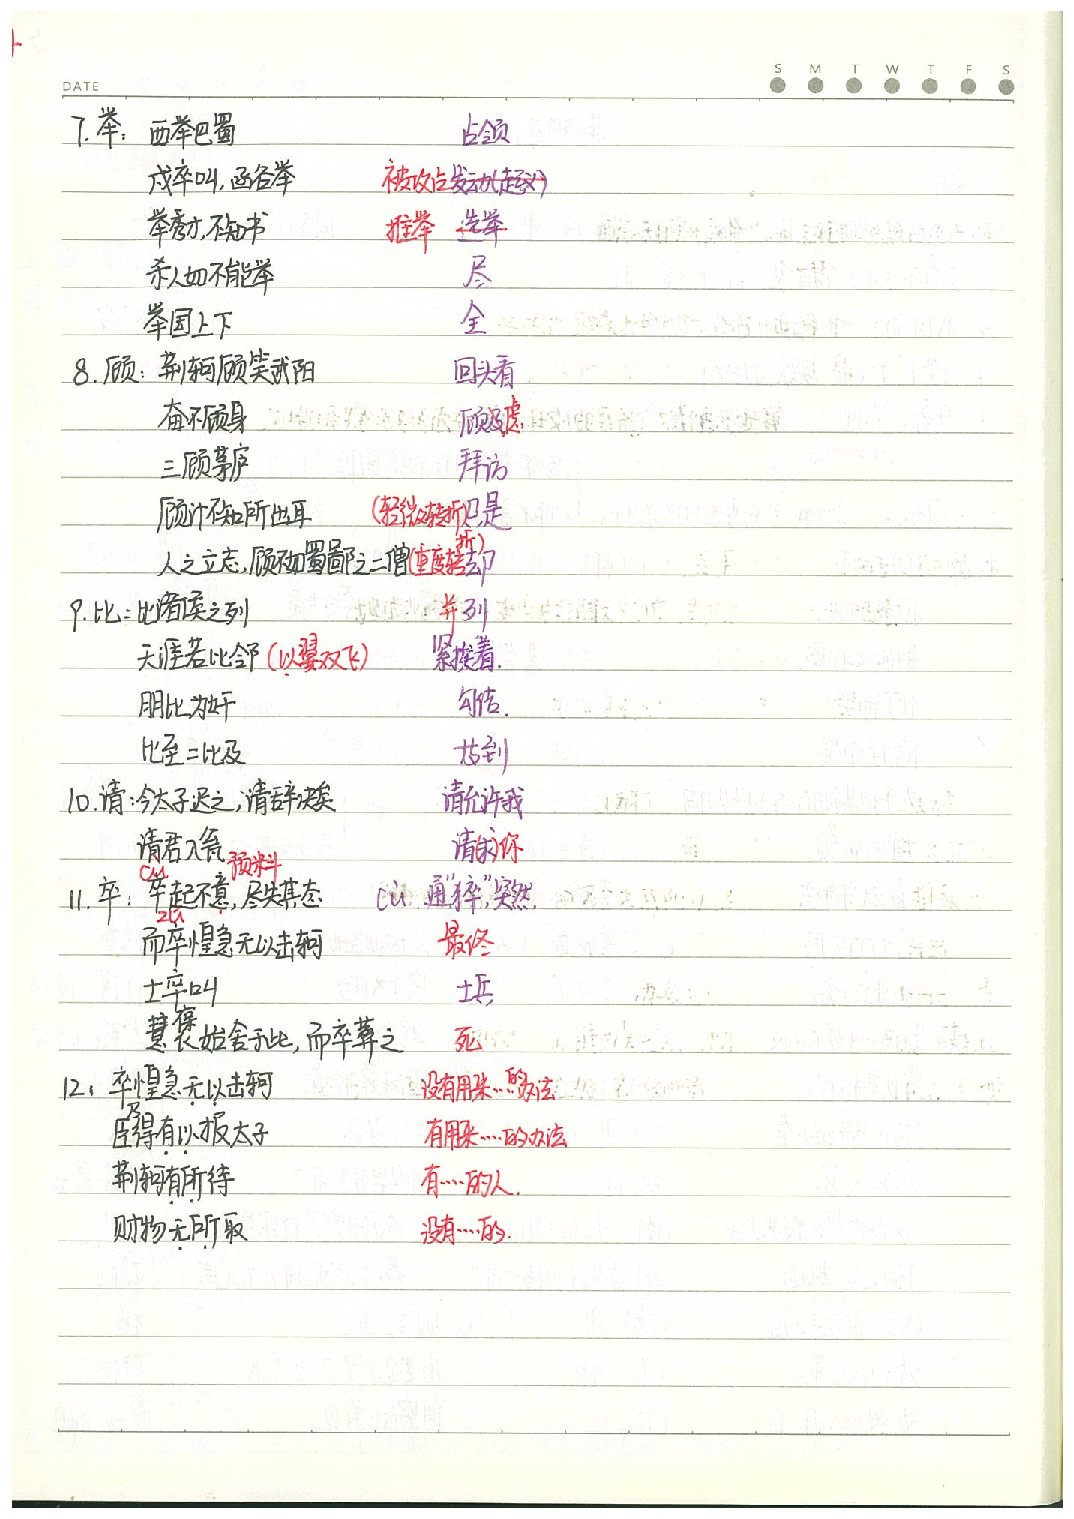 S M T W T F S
DATE
7.举: 西举巴蜀 占领
戍卒叫,函谷举 被攻占 发动(起义)
举秀才,不知书 推举 选举
杀人如不能举 尽
举国上下 全
8.顾: 荆轲顾笑武阳 回头看
奋不顾身 顾及虑
三顾茅庐 拜访
顾计不知所出耳 (轻微转折)只是
人之立志,顾不如蜀鄙之二僧(重度转折)却
9.比: 比诸侯之列 并列
天涯若比邻(比翼双飞) 紧挨着.
朋比为奸 勾结.
比至=比及 等到
10.请:今太子迟之,请辞决矣 请允许我
请君入瓮 请你
cu 预料
11.卒: 卒起不意,尽失其态 cù 通“猝”,突然
zu
而卒惶急无以击轲 最终
士卒叫 士兵
慧褒始舍于此,而卒葬之 死
12: 卒惶急无以击轲 没有用来…的办法
臣乃得有以报太子 有用来…的办法
荆轲有所待 有…的人.
财物无所取 没有…的.